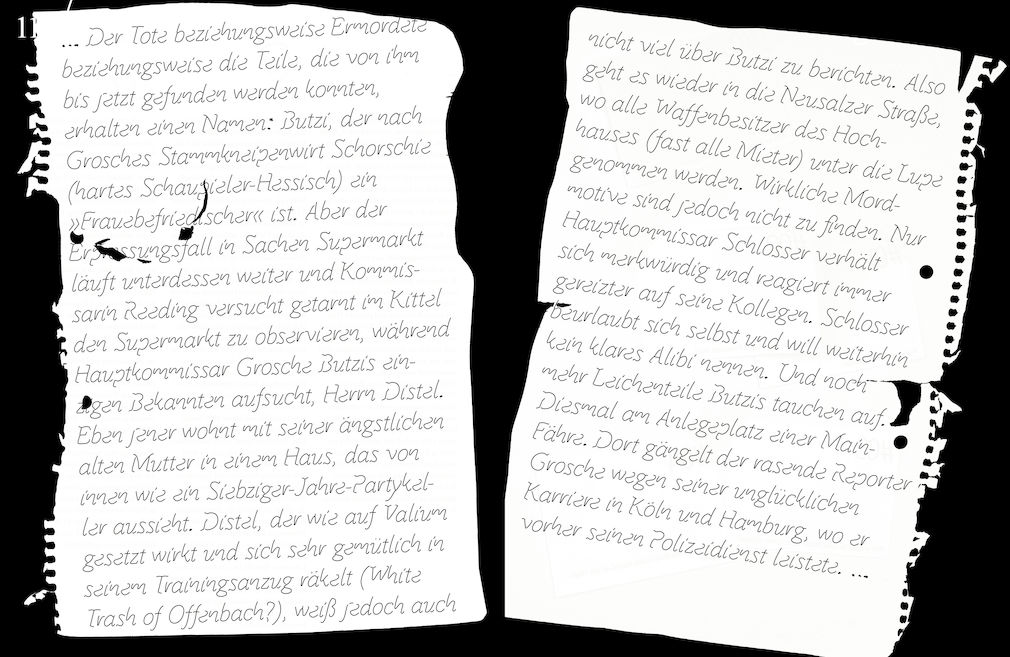 11
... Der Tote beziehungsweise Ermordete
beziehungsweise die Teile, die von ihm
bis jetzt gefunden werden konnten,
erhalten einen Namen: Butzi, der nach
Grosches Stammkneipenwirt Schorschie
(hartes Schaupieler-Hessisch) ein
»Frauebefriedischer« ist. Aber der
Erpressungsfall in Sachen Supermarkt
läuft unterdessen weiter und Kommis-
sarin Reeding versucht getarnt im Kittel
den Supermarkt zu observieren, während
Hauptkommissar Grosche Butzis ein-
zigen Bekannten aufsucht, Herrn Distel.
Eben jener wohnt mit seiner ängstlichen
alten Mutter in einem Haus, das von
innen wie ein Siebziger-Jahre-Partykel-
ler aussieht. Distel, der wie auf Valium
gesetzt wirkt und sich sehr gemütlich in
seinem Trainingsanzug räkelt (White
Trash of Offenbach?), weiß jedoch auch
nicht viel über Butzi zu berichten. Also
geht es wieder in die Neusalzer Straße,
wo alle Waffenbesitzer des Hoch-
hauses (fast alle Mieter) unter die Lupe
genommen werden. Wirkliche Mord-
motive sind jedoch nicht zu finden. Nur
Hauptkommissar Schlosser verhält
sich merkwürdig und reagiert immer
gereizter auf seine Kollegen. Schlosser
beurlaubt sich selbst und will weiterhin
kein klares Alibi nennen. Und noch
mehr Leichenteile Butzis tauchen auf.
Diesmal am Anlegeplatz einer Main-
Fähre. Dort gängelt der rasende Reporter
Grosche wegen seiner unglücklichen
Karriere in Köln und Hamburg, wo er
vorher seinen Polizeidienst leistete. ...